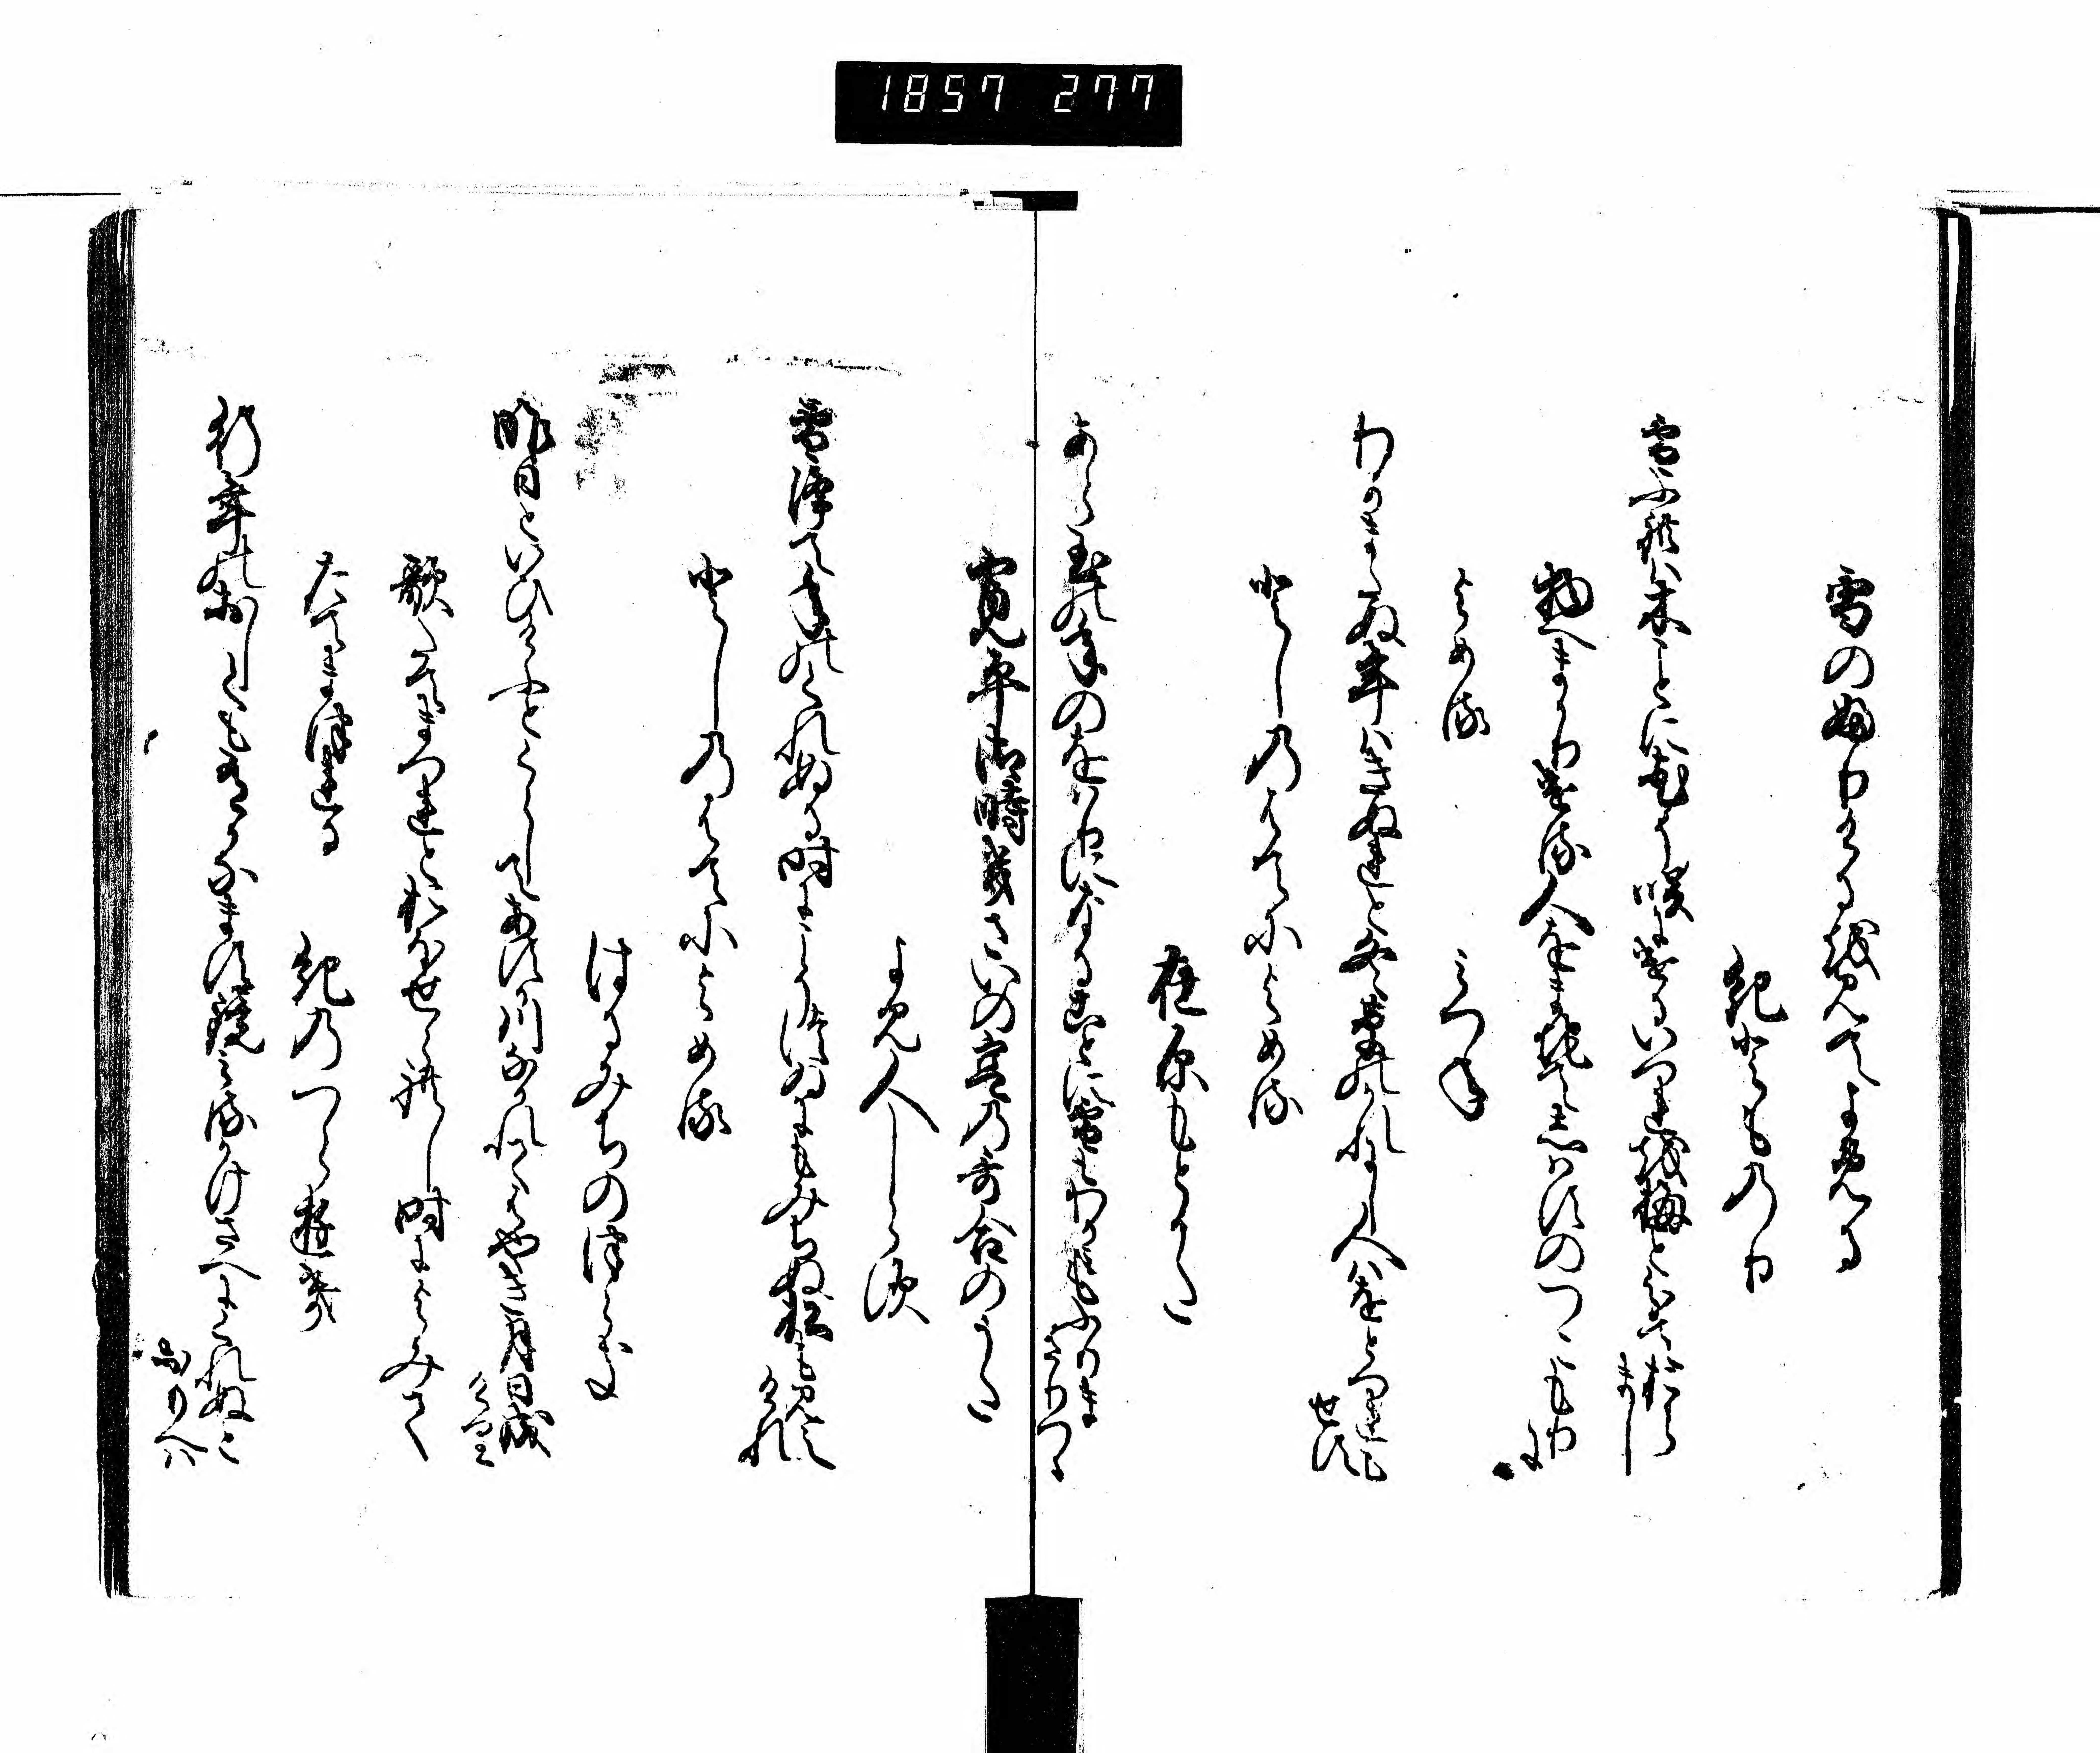 1857 277
雪のふりけるを見てよめる
紀とものり
雪ふれは木ことに花そ咲にけるいつれを梅とわきておらまし
物へまかりける人をまちてしはすのつこもりに
よめる　みつね
わかまたぬ年はきぬれと冬草のかれにし人はをとつれもせす
としのはてによめる
在原もとかた
あら玉の年のをはりになることに雪もわか身もふりまさりつゝ
寛平御時きさいの宮の哥合のうた
よみ人しらす
雪降て年のくれぬる時にこそつゐにもみちぬ松も見えけれ
としのはてによめる
はるみちのつらき
昨日といひけふとくらしてあすか川なかれてはやき月日成けり
歌たてまつれとおほせられし時によみて
たてまつれる　紀のつらゆき
行年のおしくも有かなます鏡みるかけさへにくれぬとおもへは